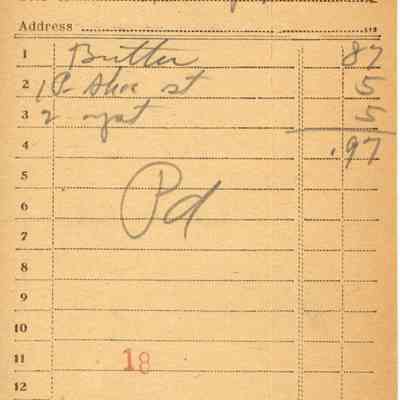 Address
1 Butter 87
2 1 P. Shoe st 5
3 2 yst 5
4 .97
5
6 Pd
7
8
9
10
11 18
12